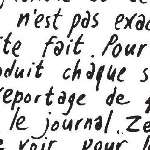 n'est pas exac
fait. Pour
duit chaque s
reportage de
le journal. Ze
voir pour l